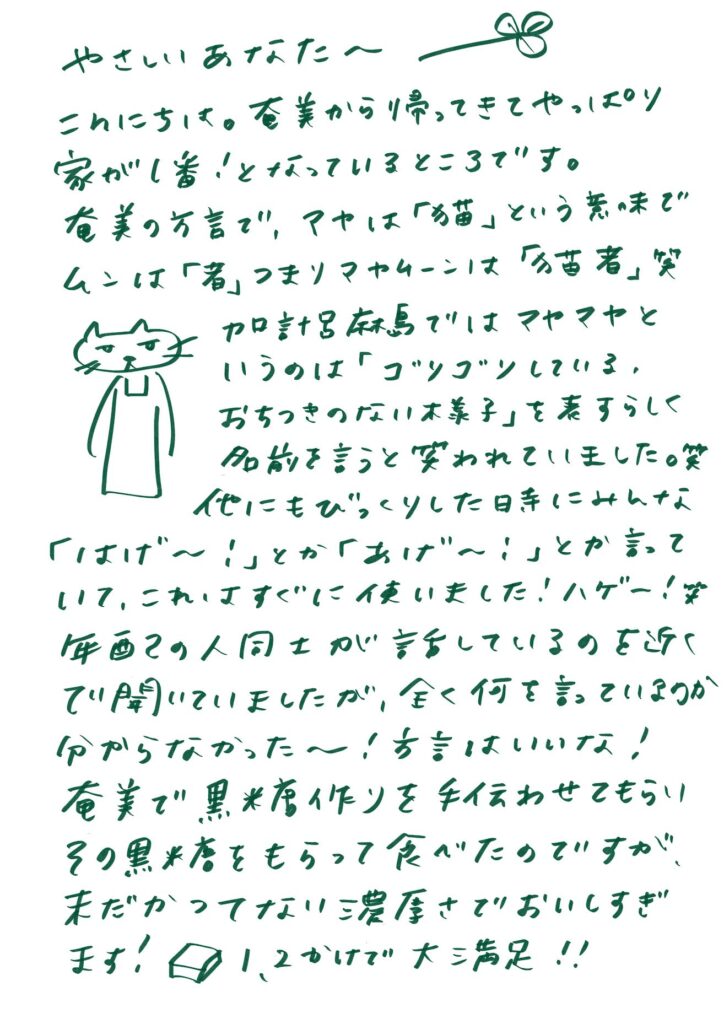 やさしいあなた〜
こんにちは。奄美から帰ってきてやっぱり
家が1番！となっているところです。
奄美の方言で、マヤは「猫」という意味で
ムンは「者」つまりマヤムーンは「猫者」笑
加計呂麻島ではマヤマヤと
いうのは「ゴソゴソしている、
おちつきのない様子」を表すらしく
名前を言うと笑われていました。笑
他にもびっくりした時にみんな
「はげ〜！」とか「あげ〜！」とか言って
いて、これはすぐに使いました！ハゲー！笑
年配の人同士が話しているのを近く
で聞いていましたが、全く何を言っているのか
分からなかった〜！方言はいいな！
奄美で黒糖作りを手伝わせてもらい
その黒糖をもらって食べたのですが、
未だかつてない濃厚さでおいしすぎ
ます！1、2かけで大満足！！